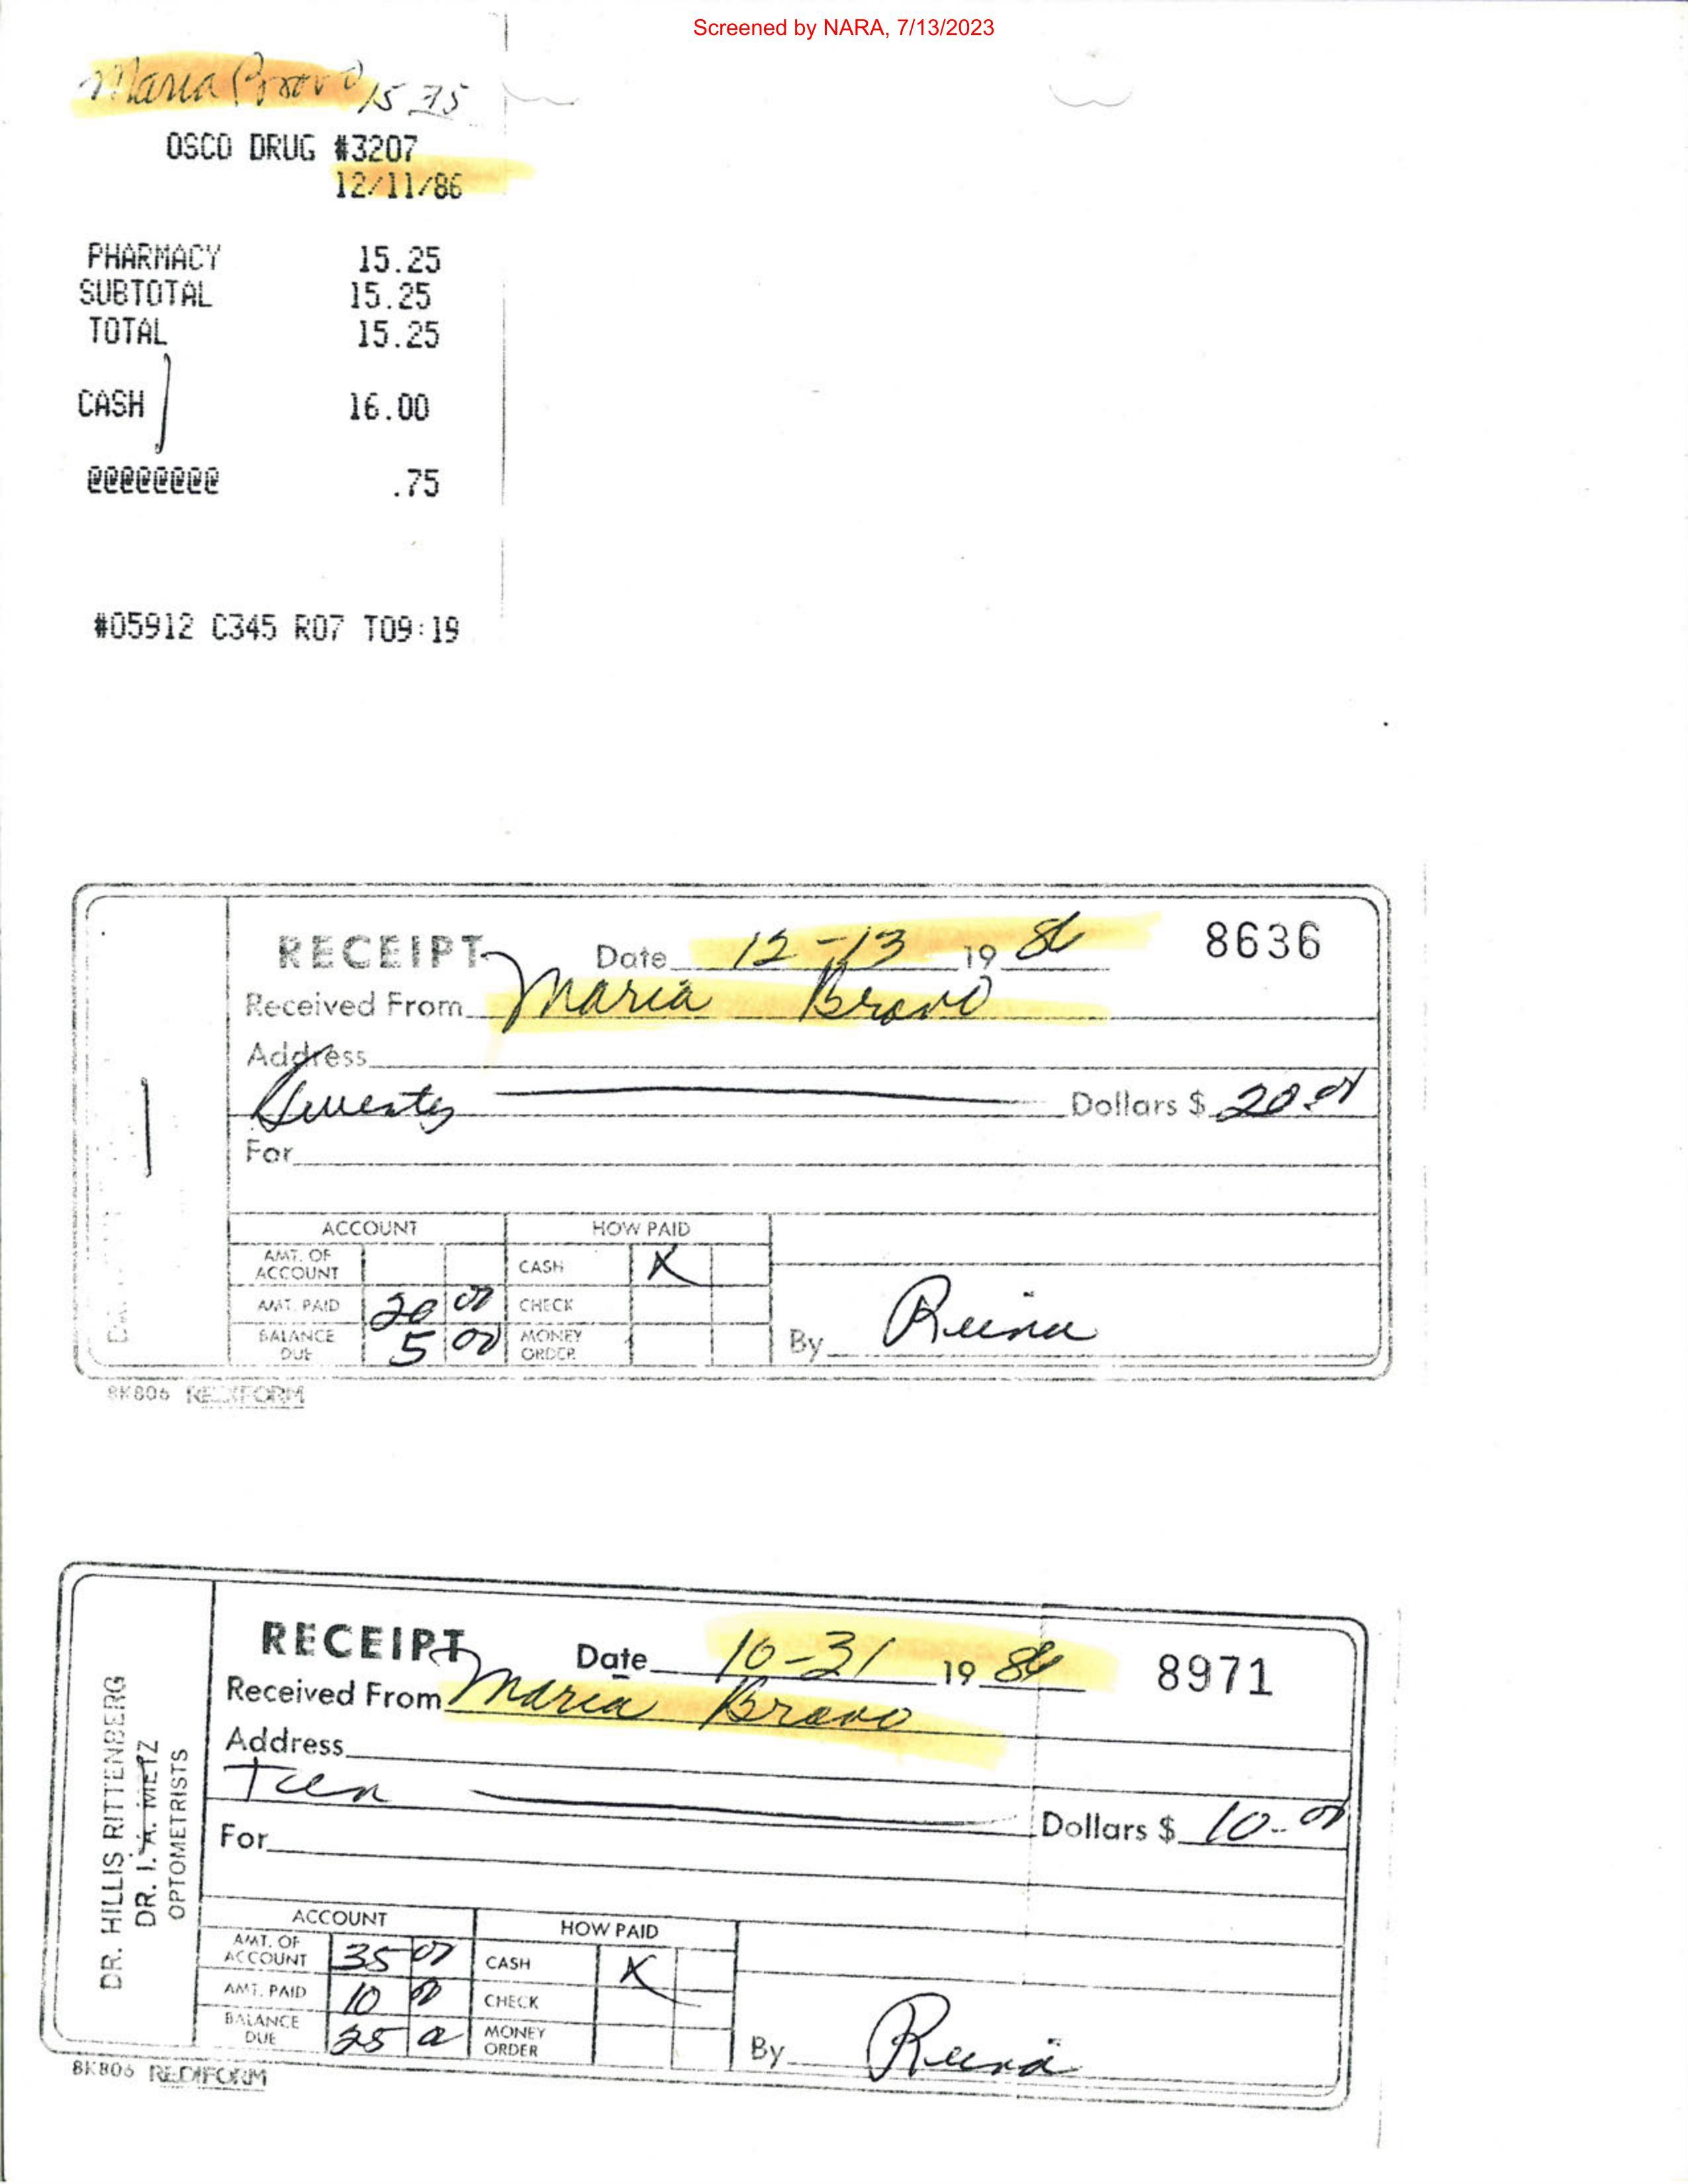 Screened by NARA, 7/13/2023
Maria Bravo 15 75
OSCO DRUG #3207
12/11/86
PHARMACY 15.25
SUBTOTAL 15.25
TOTAL 15.25
CASH 16.00
@@@@@@@@ .75
#05912 C345 R07 T09:19
RECEIPT Date 12-13 19 86 8636
Received From Maria Bravo
Address
Dollars $ 20.00
For
ACCOUNT HOW PAID
AMT. OF ACCOUNT CASH X
AMT. PAID 20 00 CHECK
BALANCE DUE 5 00 MONEY ORDER
By Reina
8K806 REDIFORM
DR. HILLIS RITTENBERG
DR. I. A. METZ
OPTOMETRISTS
RECEIPT Date 10-31 19 86 8971
Received From Maria Bravo
Address
Ten Dollars $ 10.00
For
ACCOUNT HOW PAID
AMT. OF ACCOUNT 35 00 CASH X
AMT. PAID 10 00 CHECK
BALANCE DUE 25 MONEY ORDER
By Reina
8K806 REDIFORM